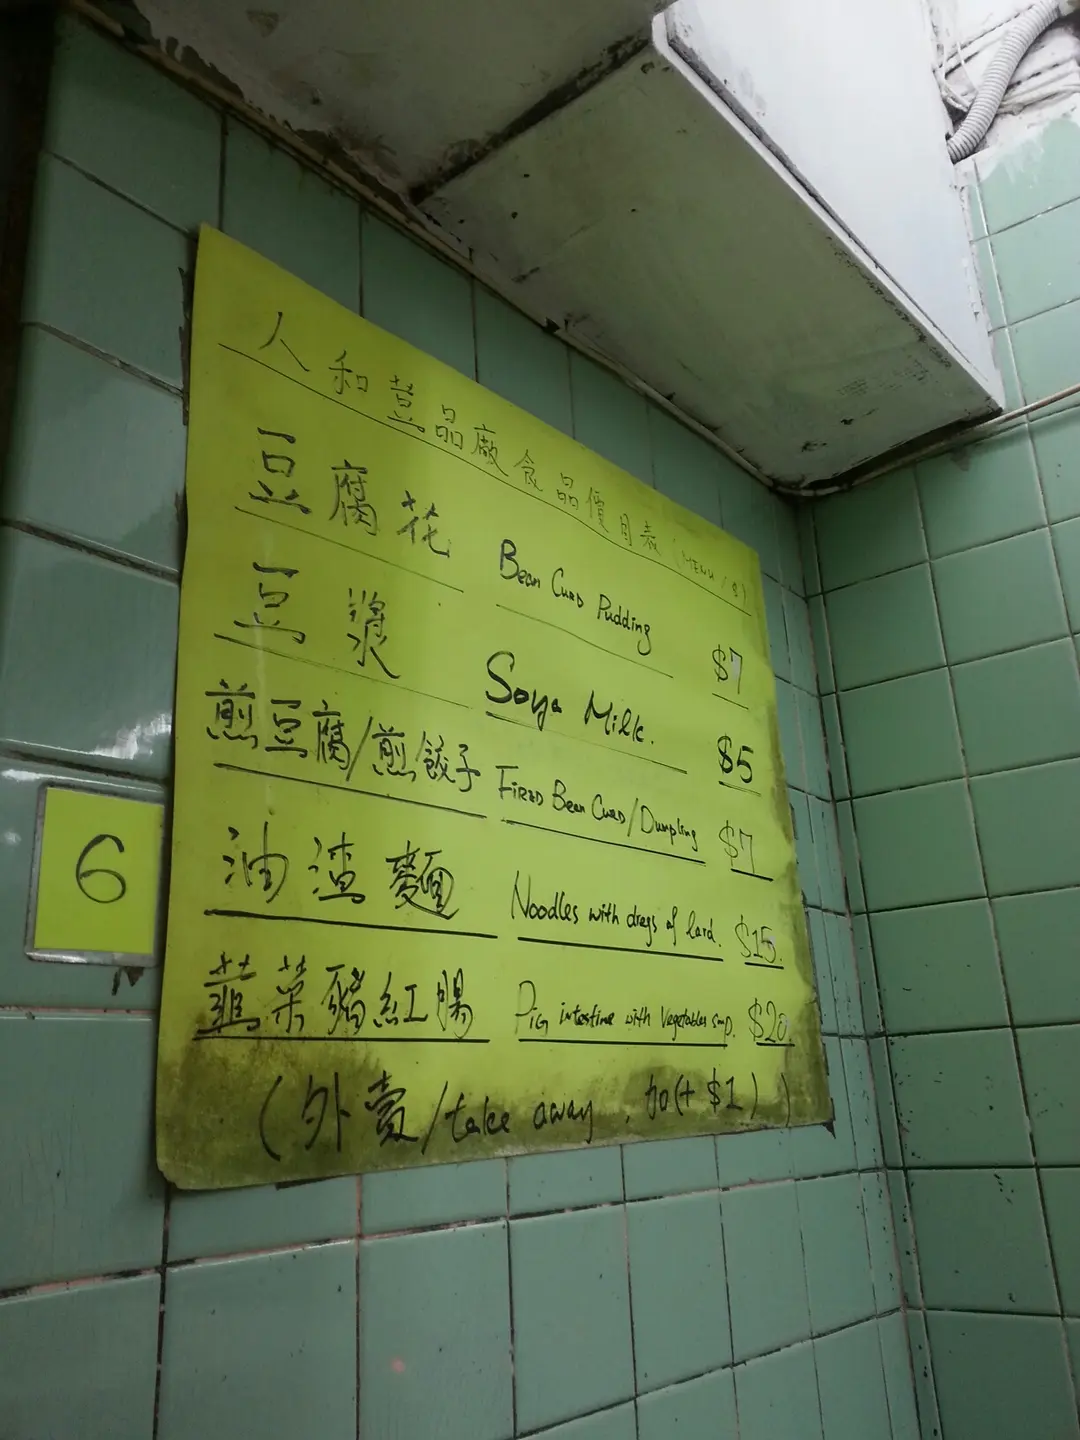 人和荳品廠食品價目表 (MENU / 8)
豆腐花 Bean Curd Pudding $7
豆漿 Soya Milk. $5
煎豆腐/煎餃子 Fired Bean Curd/Dumpling $7
油渣麵 Noodles with dregs of lard. $15.
韮菜豬紅腸 Pig intestine with Vegetables $20.
(外賣/take away, (+ $1))
6